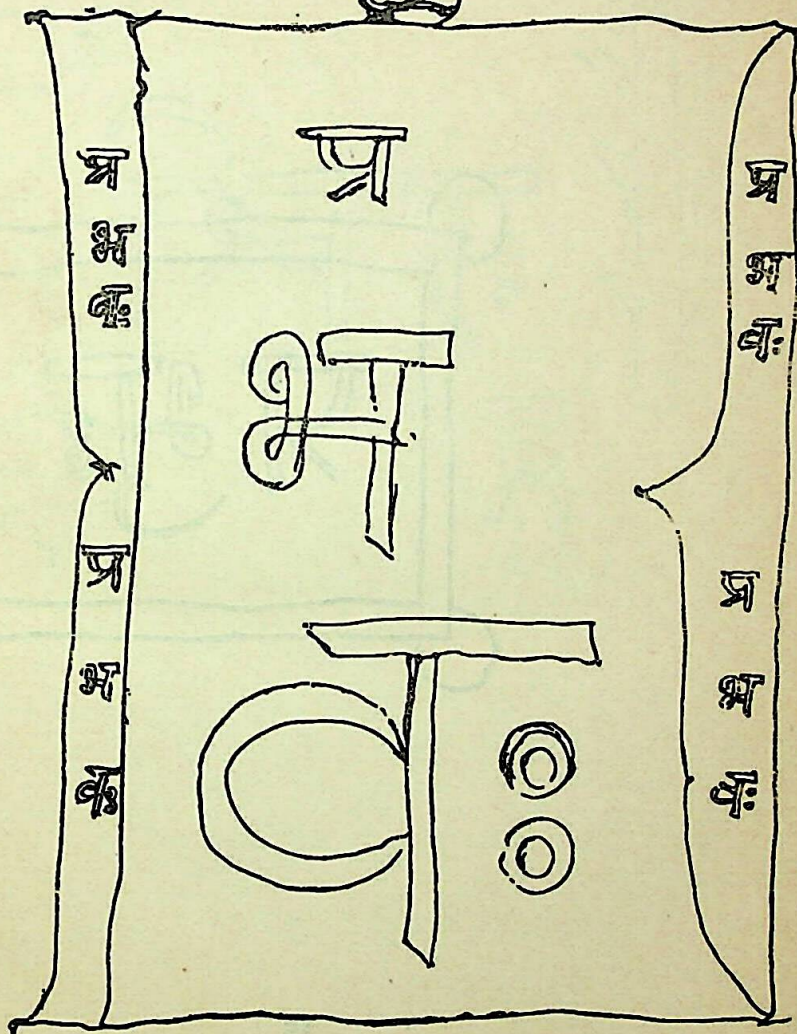 प्र
भ
वः
प्र
भ
वः
प्र
भ
वः
प्र
भ
वः
प्र
भ
वः